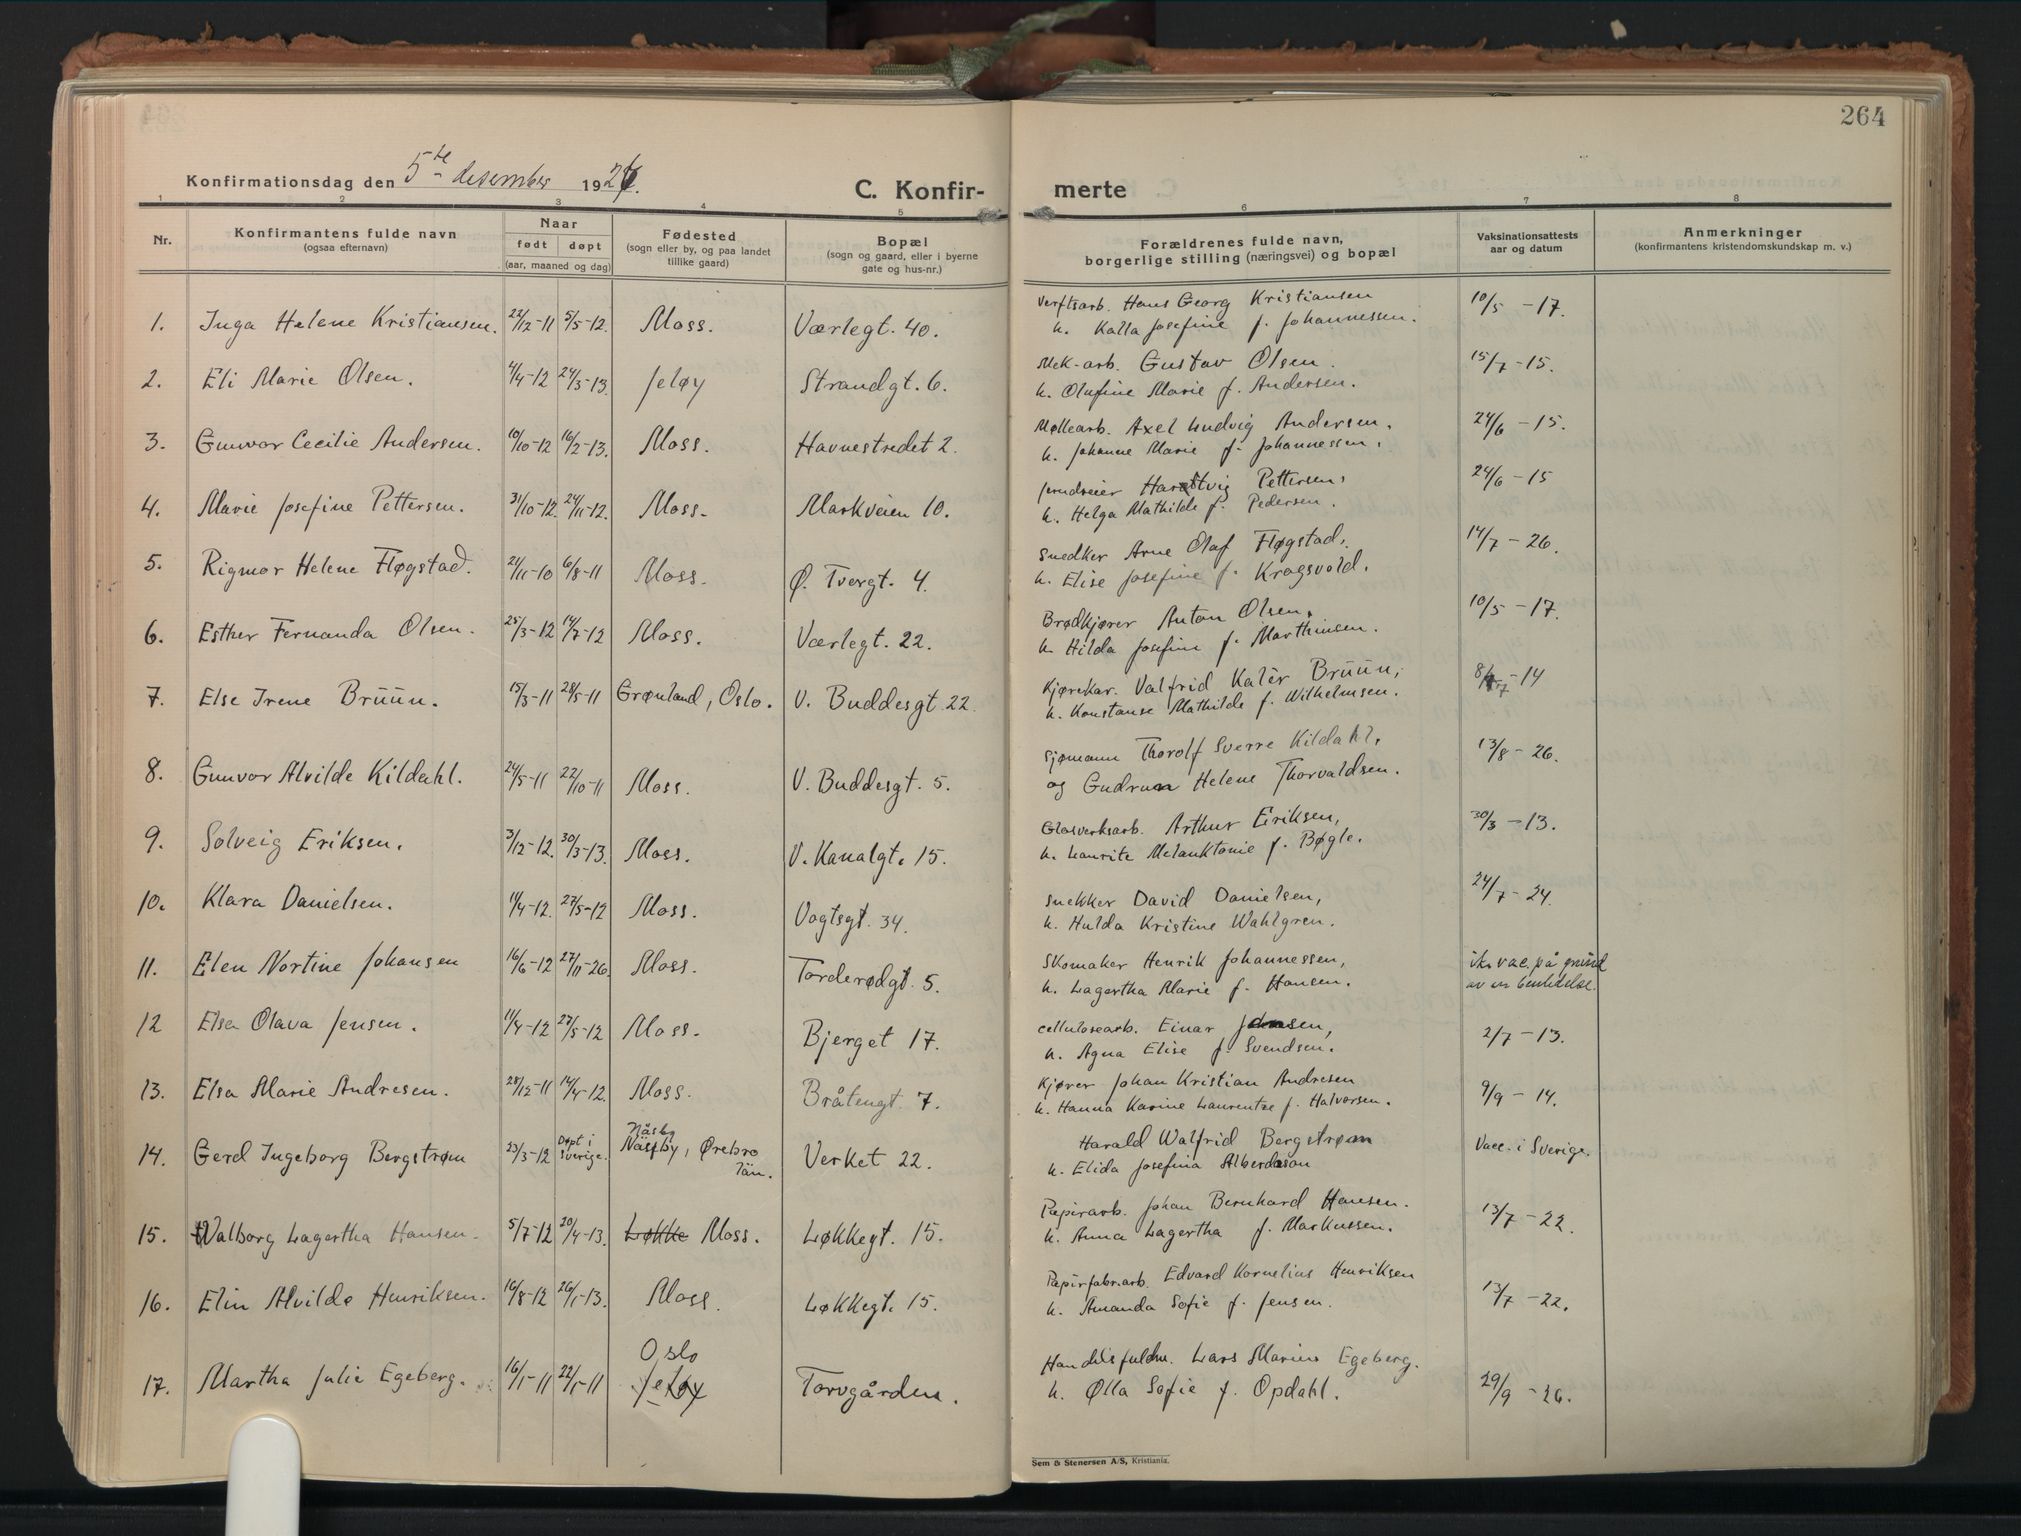 264
Konfirmationsdag den 5te desember 1926.
C. Konfir- merte
1 2 3 4 5 6 7 8
Nr.
Konfirmantens fulde navn
(ogsaa efternavn)
Naar
født døpt
(aar, maaned og dag)
Fødested
(sogn eller by, og paa landet
tillike gaard)
Bopæl
(sogn og gaard, eller i byerne
gate og hus-nr.)
Forældrenes fulde navn,
borgerlige stilling (næringsvei) og bopæl
Vaksinationsattests
aar og datum
Anmerkninger
(konfirmantens kristendomskundskap m. v.)
1. Inga Helene Kristiansen. 22/12-11 5/5-12. Moss. Værlegt. 40. Verftsarb. Hans Georg Kristiansen 10/5 - 17.
h. Kalla Josefine f. Johannessen.
2. Eli Marie Olsen. 4/4-12 24/3-13. Jeløy Strandgt. 6. Mek-arb. Gustav Olsen. 15/7-15.
h. Olufine Marie f. Andersen.
3. Gunvor Cecilie Andersen. 10/10-12 16/2-13. Moss. Havnestredet 2. Møllearb. Axel Ludvig Andersen. 24/6 - 15.
h. Johanne Marie f. Johannessen.
4. Marie Josefine Pettersen. 31/10-12. 24/11-12. Moss. Markveien 10. Hartvig Pettersen, 24/6 - 15
h. Helga Mathilde f. Pedersen.
5. Rigmor Helene Fløgstad. 21/11-10 6/8-11 Moss. Ø. Tvergt. 4. Snedker Arne Olaf Fløgstad. 14/7 - 26.
h. Elise Josefine f. Kragsvold.
6. Esther Fernanda Olsen. 25/3-12 14/7-12 Moss. Værlegt. 22. Brødkjører Anton Olsen. 10/5 - 17.
h. Hilda Josefine f. Marthinsen.
7. Else Irene Bruun. 15/3-11 28/5-11 Grønland, Oslo. V. Buddesgt. 22. Kjørekar. Valfrid Kaler Bruun, 8/7-14
h. Konstanse Mathilde f. Wilhelmsen.
8. Gunvor Alvilde Kildahl. 24/5-11 22/10-11 Moss. V. Buddesgt. 5. Sjømann Thorolf Sverre Kildahl, 13/8 - 26.
og Gudrun Helene Thorvaldsen.
9. Solveig Eriksen. 3/12-12. 30/3-13. Moss. V. Kanalgt. 15. Glasverksarb. Arthur Eriksen, 30/3 - 13.
h. Laurite Melanktonie f. Bøgle.
10. Klara Danielsen. 11/4-12. 27/5-12 Moss. Vogtsgt. 34. Snekker David Danielsen, 24/7 - 24.
h. Hulda Kristine Wahlgren.
11. Elen Nortine Johansen 16/6-12 27/11-26. Moss. Torderødgt. 5. Skomaker Henrik Johannessen, ik. vac. på grund
h. Lagertha Marie f. Hansen. av en
12 Elsa Olava Jensen. 11/4-12 27/5-12 Moss. Bjerget 17. Cellulosearb. Einar Jensen, 2/7-13.
h. Agna Elise f. Svendsen.
13. Elsa Marie Andresen. 28/12-11 14/4-12. Moss. Bråtengt. 7. Kjører Johan Kristian Andresen 9/9 - 14.
h. Hanna Karine Laurentze f. Halvorsen.
14. Gerd Ingeborg Bergstrøm 23/3-12 Døpt i Sverige. Näsby Näsby, Ørebro län. Verket 22. Harald Walfrid Bergstrøm Vacc. i Sverige.
h. Elida Josefina Albertson
15. Walborg Lagertha Hansen. 5/7-12 20/4-13. Løkke Moss. Løkkegt. 15. Papirarb. Johan Bernhard Hansen. 13/7 - 22.
h. Anna Lagertha f. Markussen.
16. Elin Alvilde Henriksen. 16/8-12 26/1-13. Moss. Løkkegt. 15. Papirfabrarb. Edvard Kornelius Henriksen 13/7 - 22.
h. Amanda Sofie f. Jensen.
17. Martha Julie Egeberg. 16/1-11 22/1-11 Oslo Jeløy Torvgården. Handelsfuldm. Lars Marius Egeberg. 29/9 - 26.
h. Olla Sofie f. Opdahl.
Sem & Stenersen A/S, Kristiania.